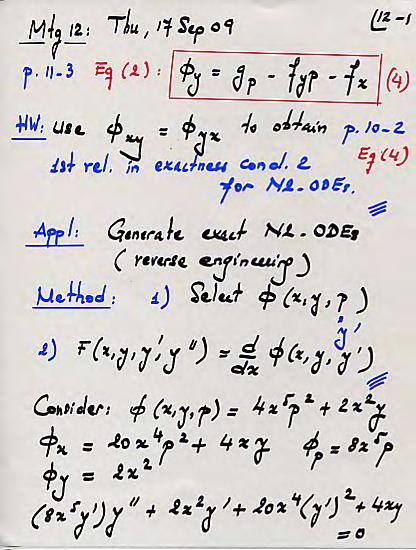 Mtg 12: Thu, 17 Sep 09 (12-1
p. 11-3 Eq (2): ϕ_y = g_p - f_y p - f_x (4)
HW: Use ϕ_xy = ϕ_yx to obtain p. 10-2
1st rel. in exactness cond. 2 Eq (4)
for N2-ODEs.
Appl: Generate exact N2-ODEs
(reverse engineering)
Method: 1) Select ϕ(x,y,p)
y'
2) F(x,y,y',y'') = d/dx ϕ(x,y,y')
Consider: ϕ(x,y,p) = 4x⁵p² + 2x²y
ϕ_x = 20x⁴p² + 4xy ϕ_p = 8x⁵p
ϕ_y = 2x²
(8x⁵y')y'' + 2x²y' + 20x⁴(y')² + 4xy
= 0